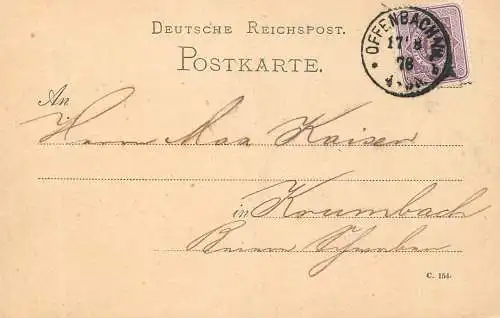 DEUTSCHE REICHSPOST.
POSTKARTE.
OFFENBACH
17 8
76
An
Herrn Max Kaiser
in Krumbach
Schwaben
C. 154.